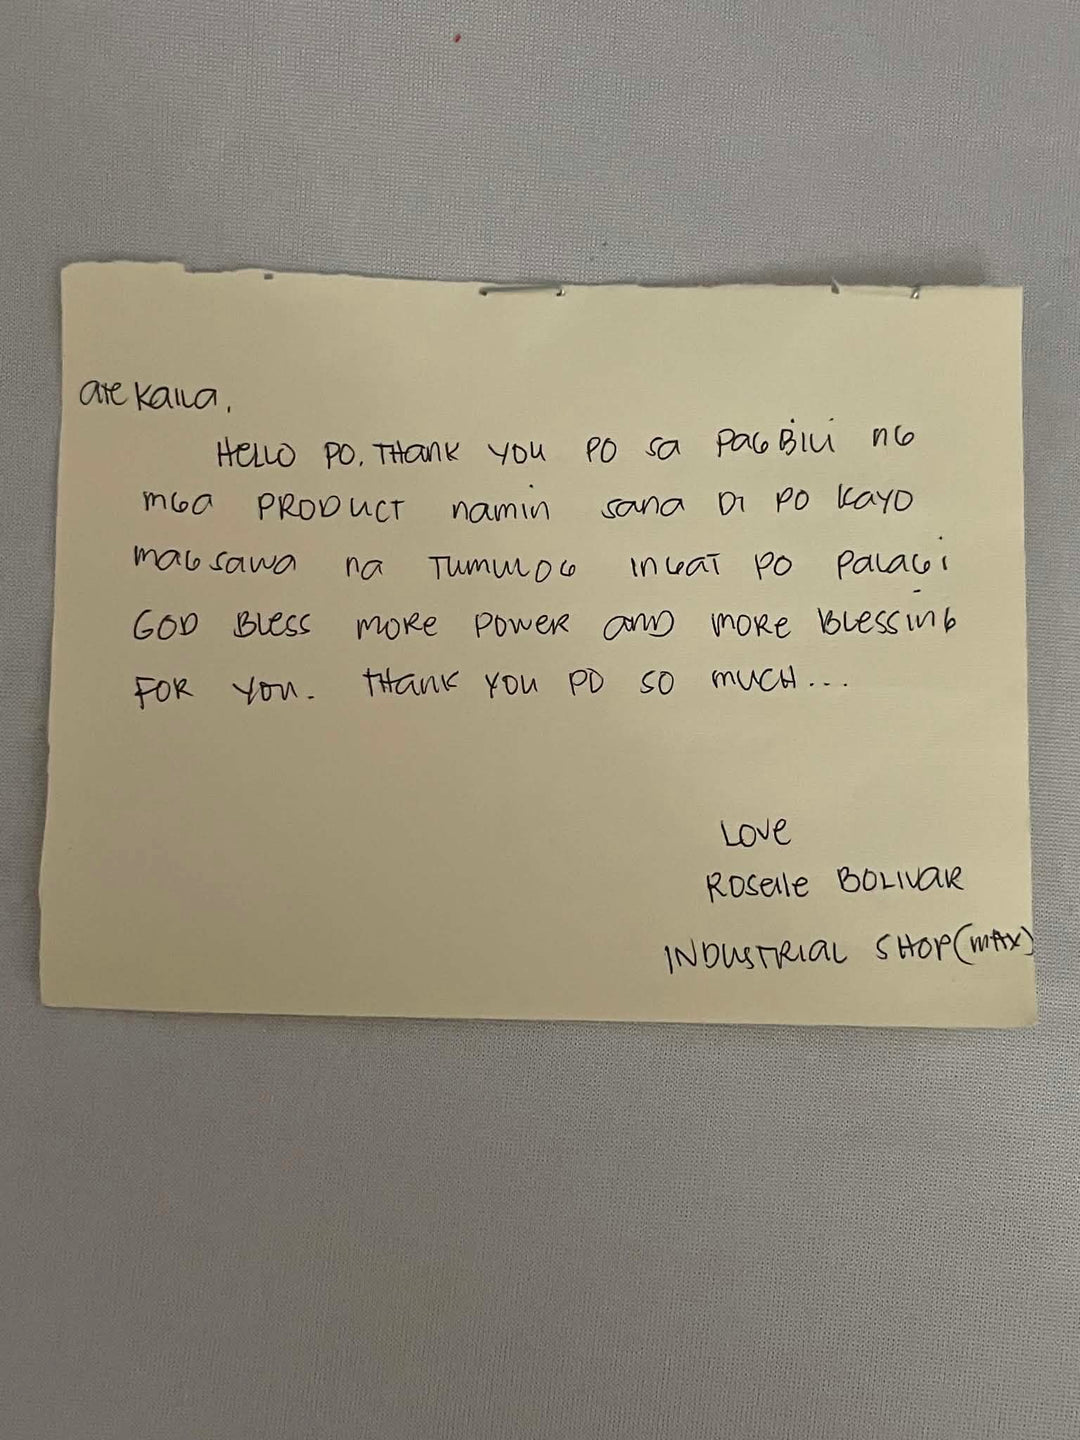 ate Kaila,
HELLO PO. THANK YOU PO sa PAGBILI NG
MGA PRODUCT namin sana DI PO KAYO
MAGSAWA na TUMULOG INGAT PO PALAGI
GOD BLESS MORE POWER AND MORE BLESSING
FOR YOU. THANK YOU PO SO MUCH...
LOVE
ROSELLE BOLIVAR
INDUSTRIAL SHOP (MAX)